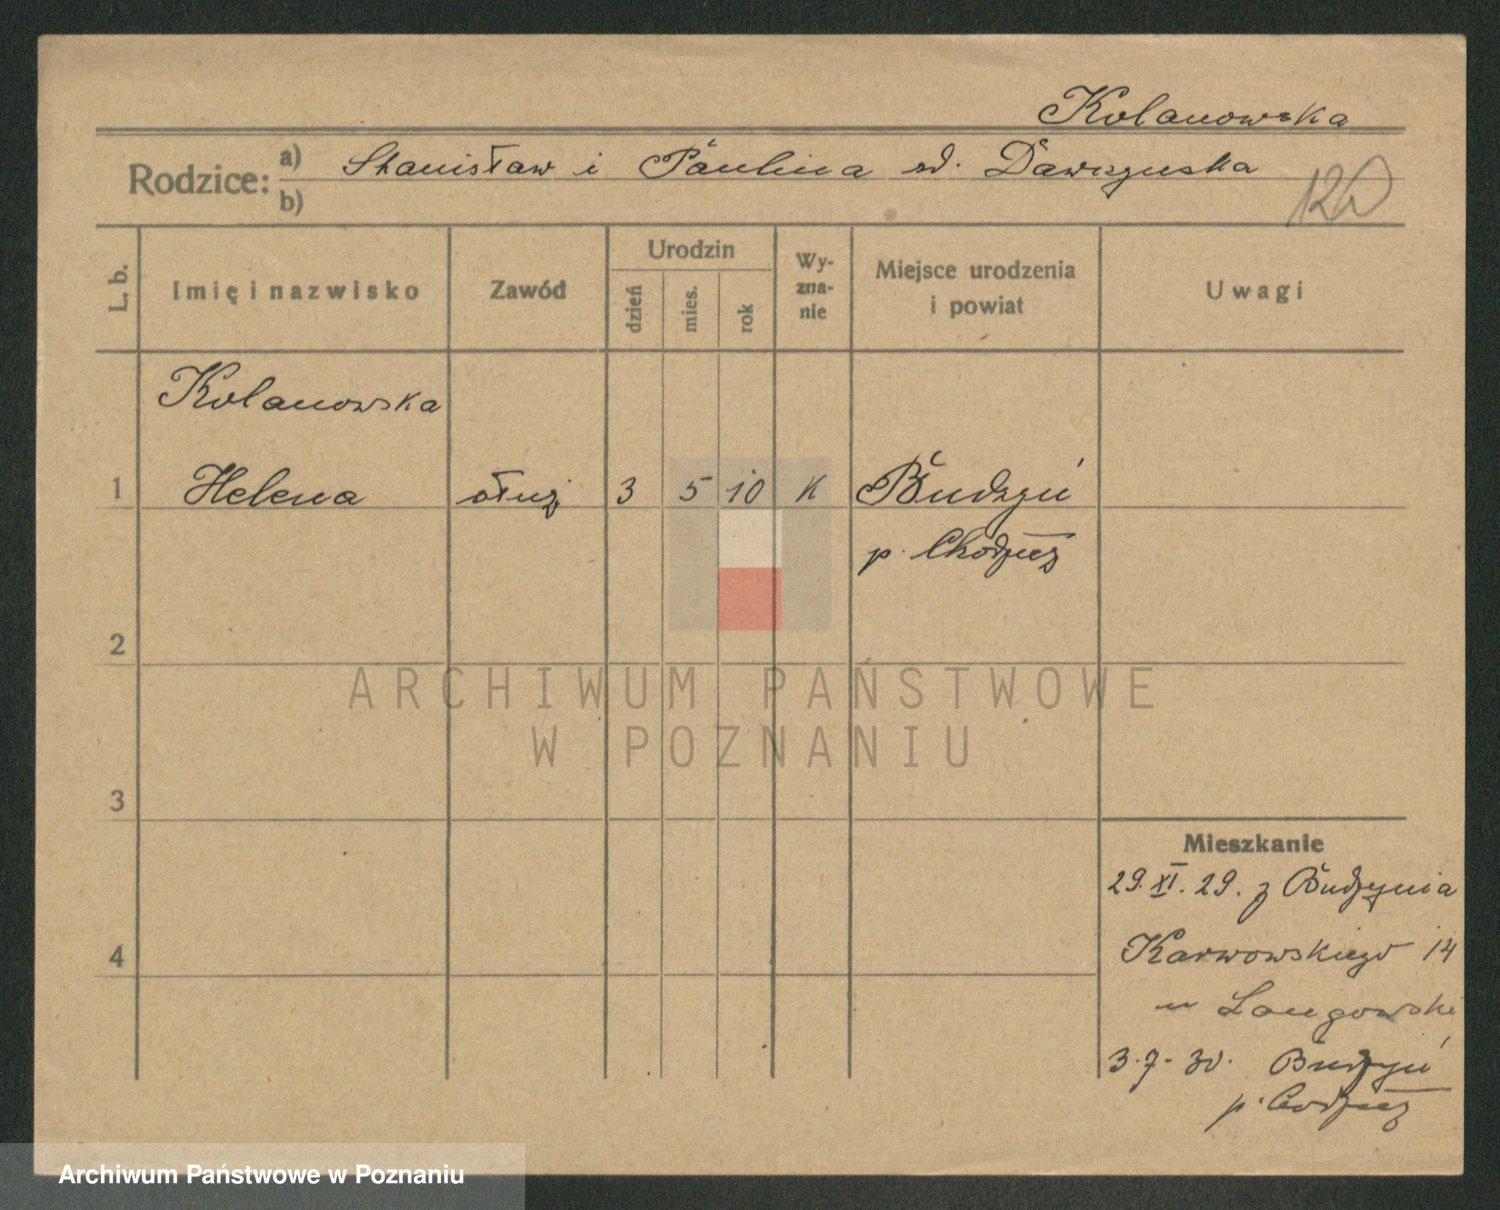 Kolanowska
Rodzice: a) Stanisław i Paulina zd. Dawczyńska
b)
120
L. b. Imię i nazwisko Zawód Urodzin dzień mies. rok Wy-zna-nie Miejsce urodzenia i powiat Uwagi
Kolanowska
1 Helena służ. 3 5 10 K Budzyń
p. Chodzież
2
ARCHIWUM PAŃSTWOWE
W POZNANIU
3
Mieszkanie
29. XI. 29. z Budzynia
4 Karwowskiego 14
u Langowski
3.7-30. Budzyń
p. Chodzież
Archiwum Państwowe w Poznaniu